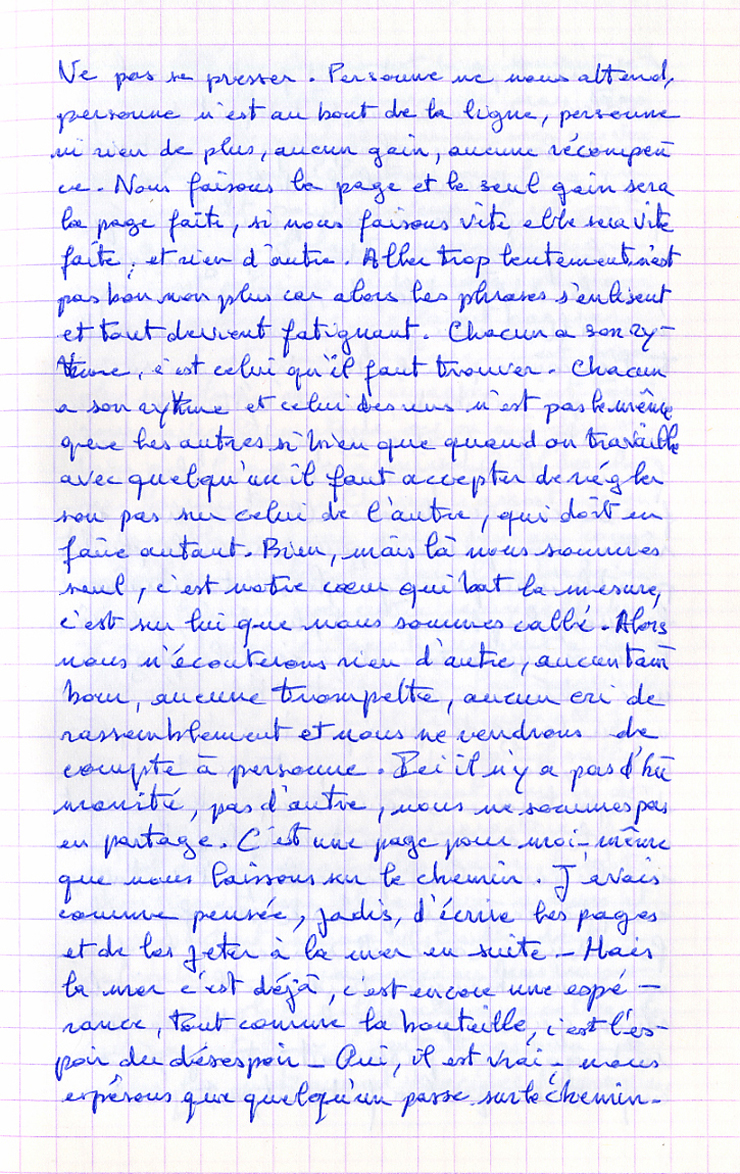 Ne pas se presser. Personne ne nous attend,
personne n'est au bout de la ligne, personne
ni rien de plus, aucun gain, aucune récompen
ce. Nous faisons la page et le seul gain sera
la page faite, si nous faisons vite elle sera vite
faite, et rien d'autre. Aller trop lentement n'est
pas bon non plus car alors les phrases s'enlisent
et tout devient fatiguant. Chacun a son ry-
thme, c'est celui qu'il faut trouver. Chacun
a son rythme et celui des uns n'est pas le même
que les autres si bien que quand on travaille
avec quelqu'un il faut accepter de régler
son pas sur celui de l'autre, qui doit en
faire autant. Bien, mais là nous sommes
seul, c'est notre cœur qui bat la mesure,
c'est sur lui que nous sommes callé. Alors
nous n'écouterons rien d'autre, aucun tam
bour, aucune trompette, aucun cri de
rassemblement et nous ne rendrons de
compte à personne. Ici il n'y a pas d'hu
manité, pas d'autre, nous ne sommes pas
en partage. C'est une page pour moi-même
que nous laissons sur le chemin. J'avais
comme pensée, jadis, d'écrire les pages
et de les jeter à la mer en suite - Mais
la mer c'est déjà, c'est encore une espé -
rance, tout comme la bouteille, c'est l'es-
poir du désespoir - Oui, il est vrai - nous
espérons que quelqu'un passe sur le chemin -